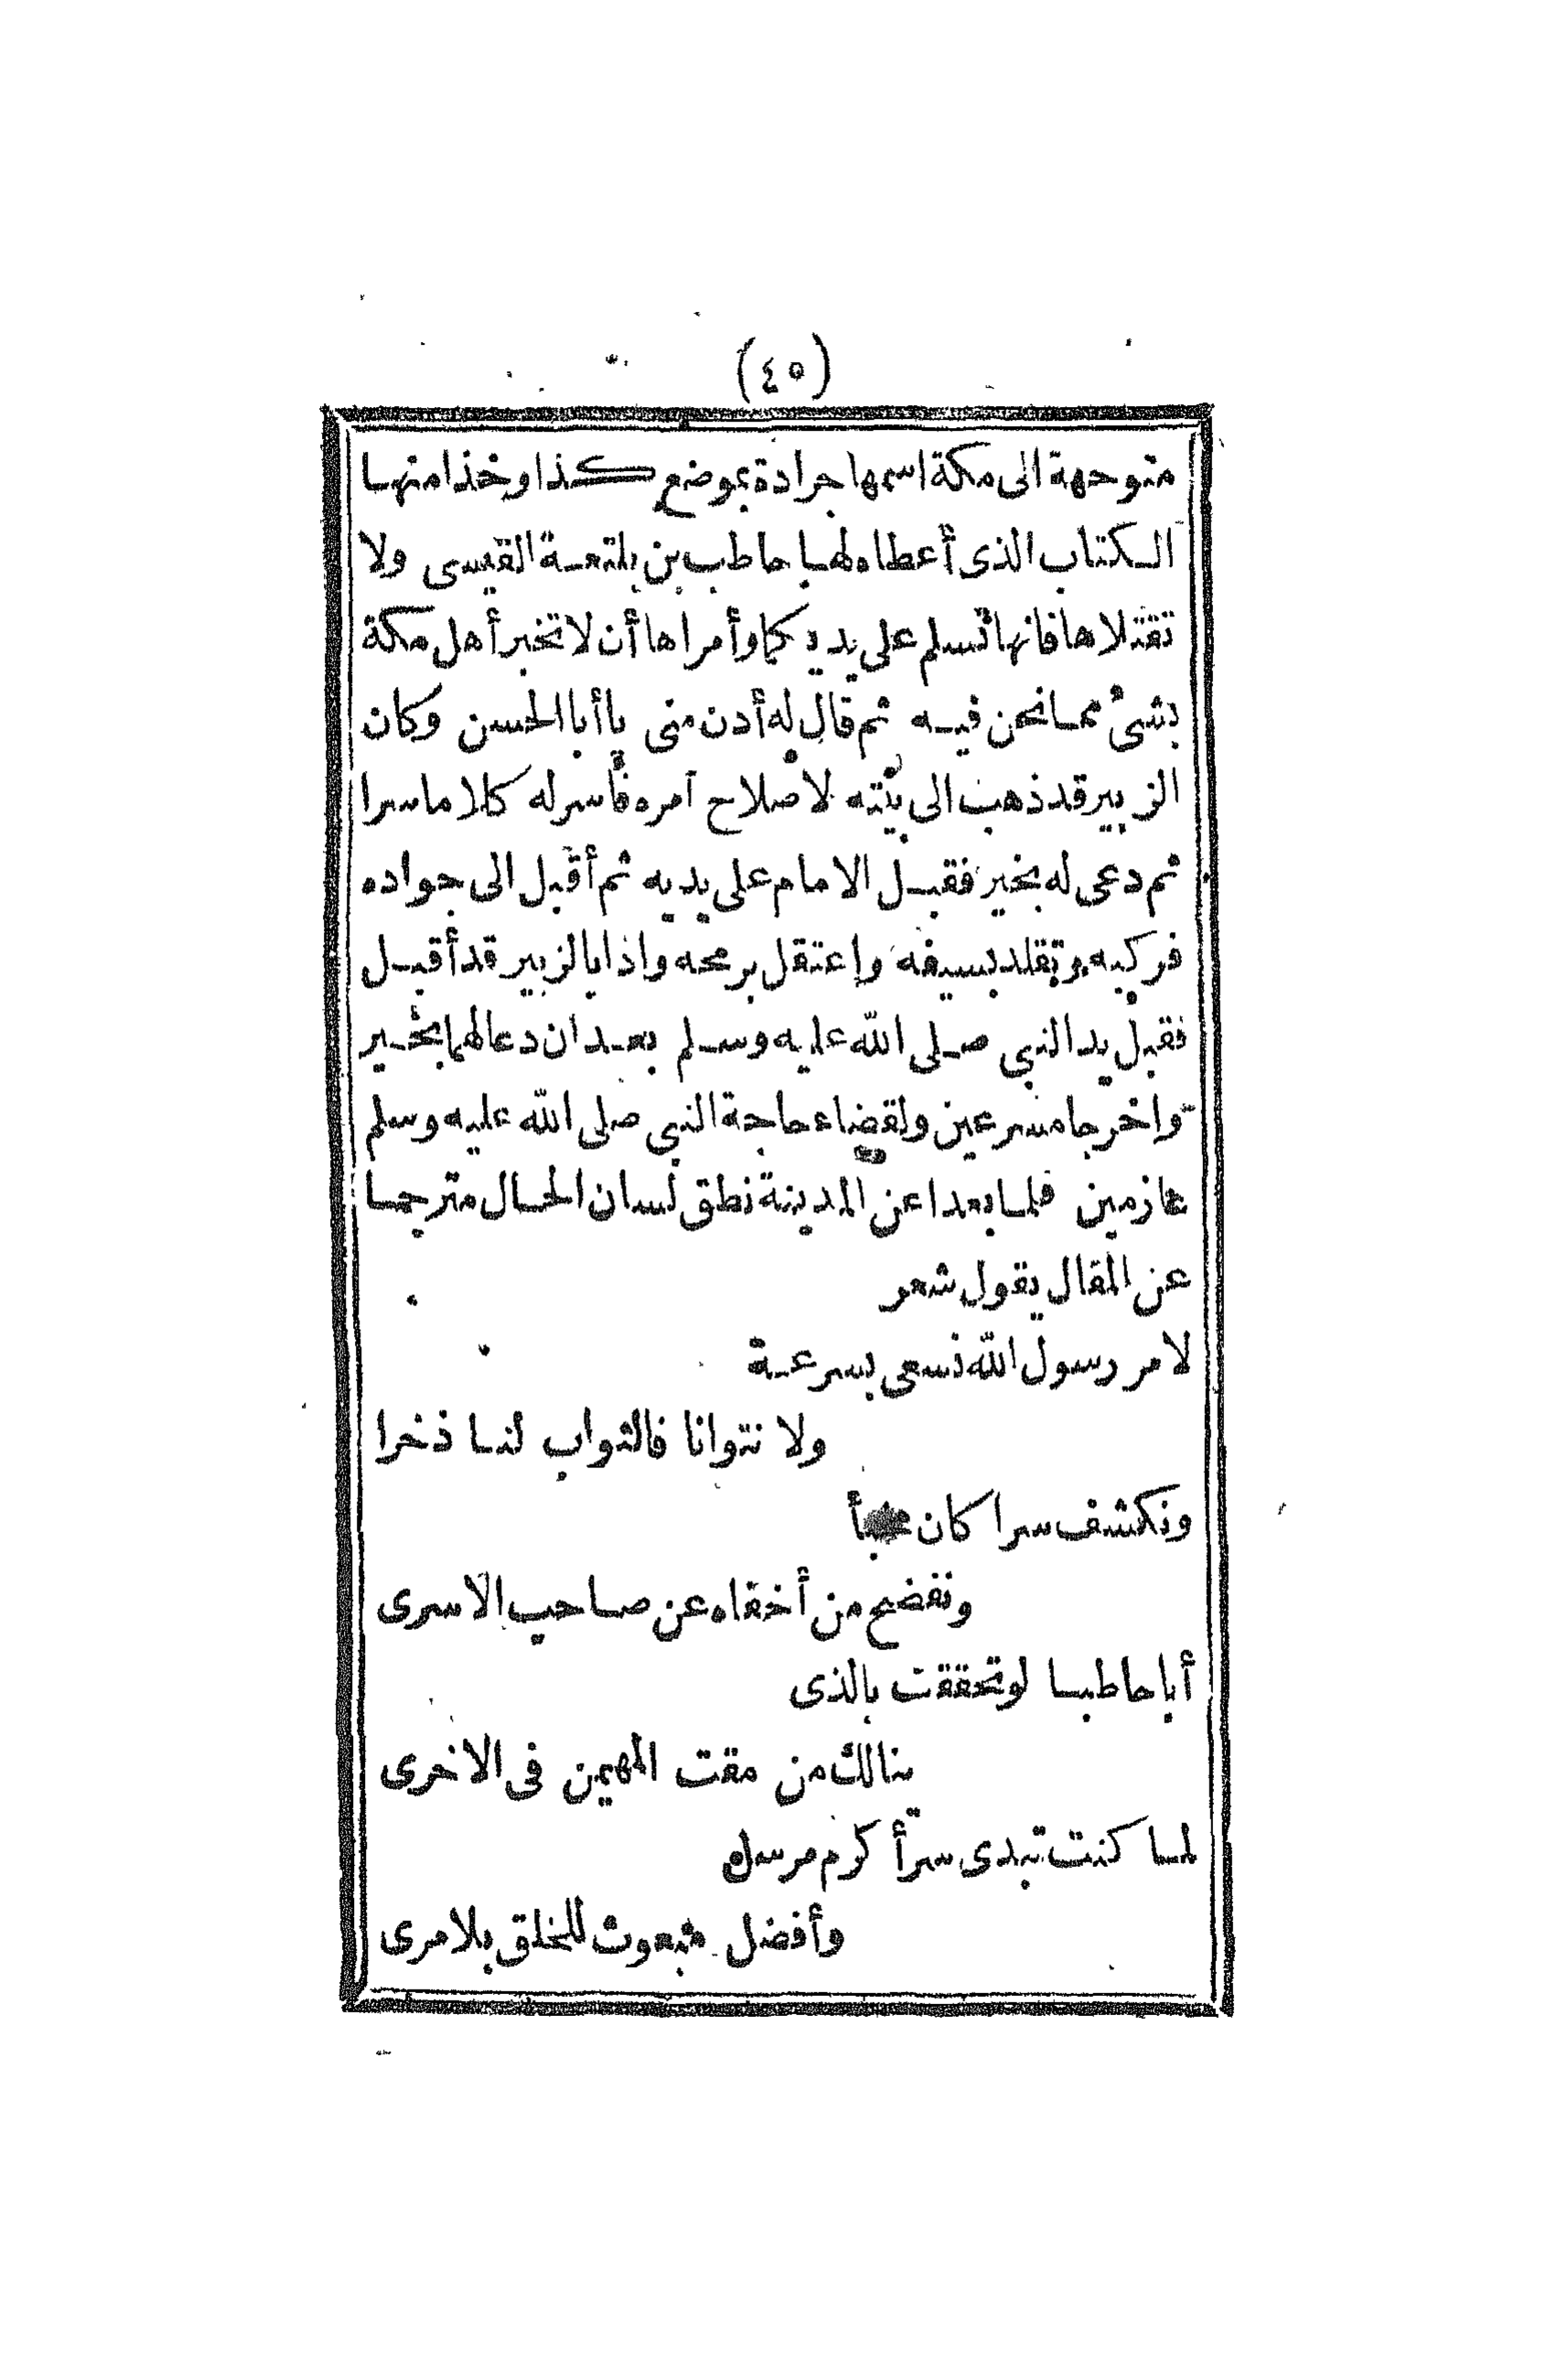 (٤٥)
متوجهة الى مكة اسمها جرادة بموضع كذا وخذا منها
الكتاب الذى أعطاه لها حاطب بن بلتعة القيسى ولا
تقتلاها فانها تسلم على يديكما وأمراها أن لا تخبر أهل مكة
بشئ مما نحن فيه ثم قال له أدن منى يا أبا الحسن وكان
الزبير قد ذهب الى بيته لاصلاح أمره فأسر له كلاما سرا
ثم دعى له بخير فقبل الامام على يديه ثم أقبل الى جواده
فركبه وتقلد بسيفه واعتقل برمحه واذا بالزبير قد أقبل
فقبل يد النبى صلى الله عليه وسلم بعد ان دعا لهما بخير
واخرجا مسرعين ولقضاء حاجة النبى صلى الله عليه وسلم
عازمين فلما بعدا عن المدينة نطق لسان الحال مترجما
عن المقال يقول شعر
لامر رسول الله نسعى بسرعة
ولا نتوانا فالثواب لنا ذخرا
ونكشف سرا كان
ونفضح من أخفاه عن صاحب الاسرى
أبا حاطبا لو تحققت بالذى
ينالك من مقت المهيمن فى الاخرى
لما كنت تبدى سر أكرم مرسل
وأفضل مبعوث للخلق بلا مرى